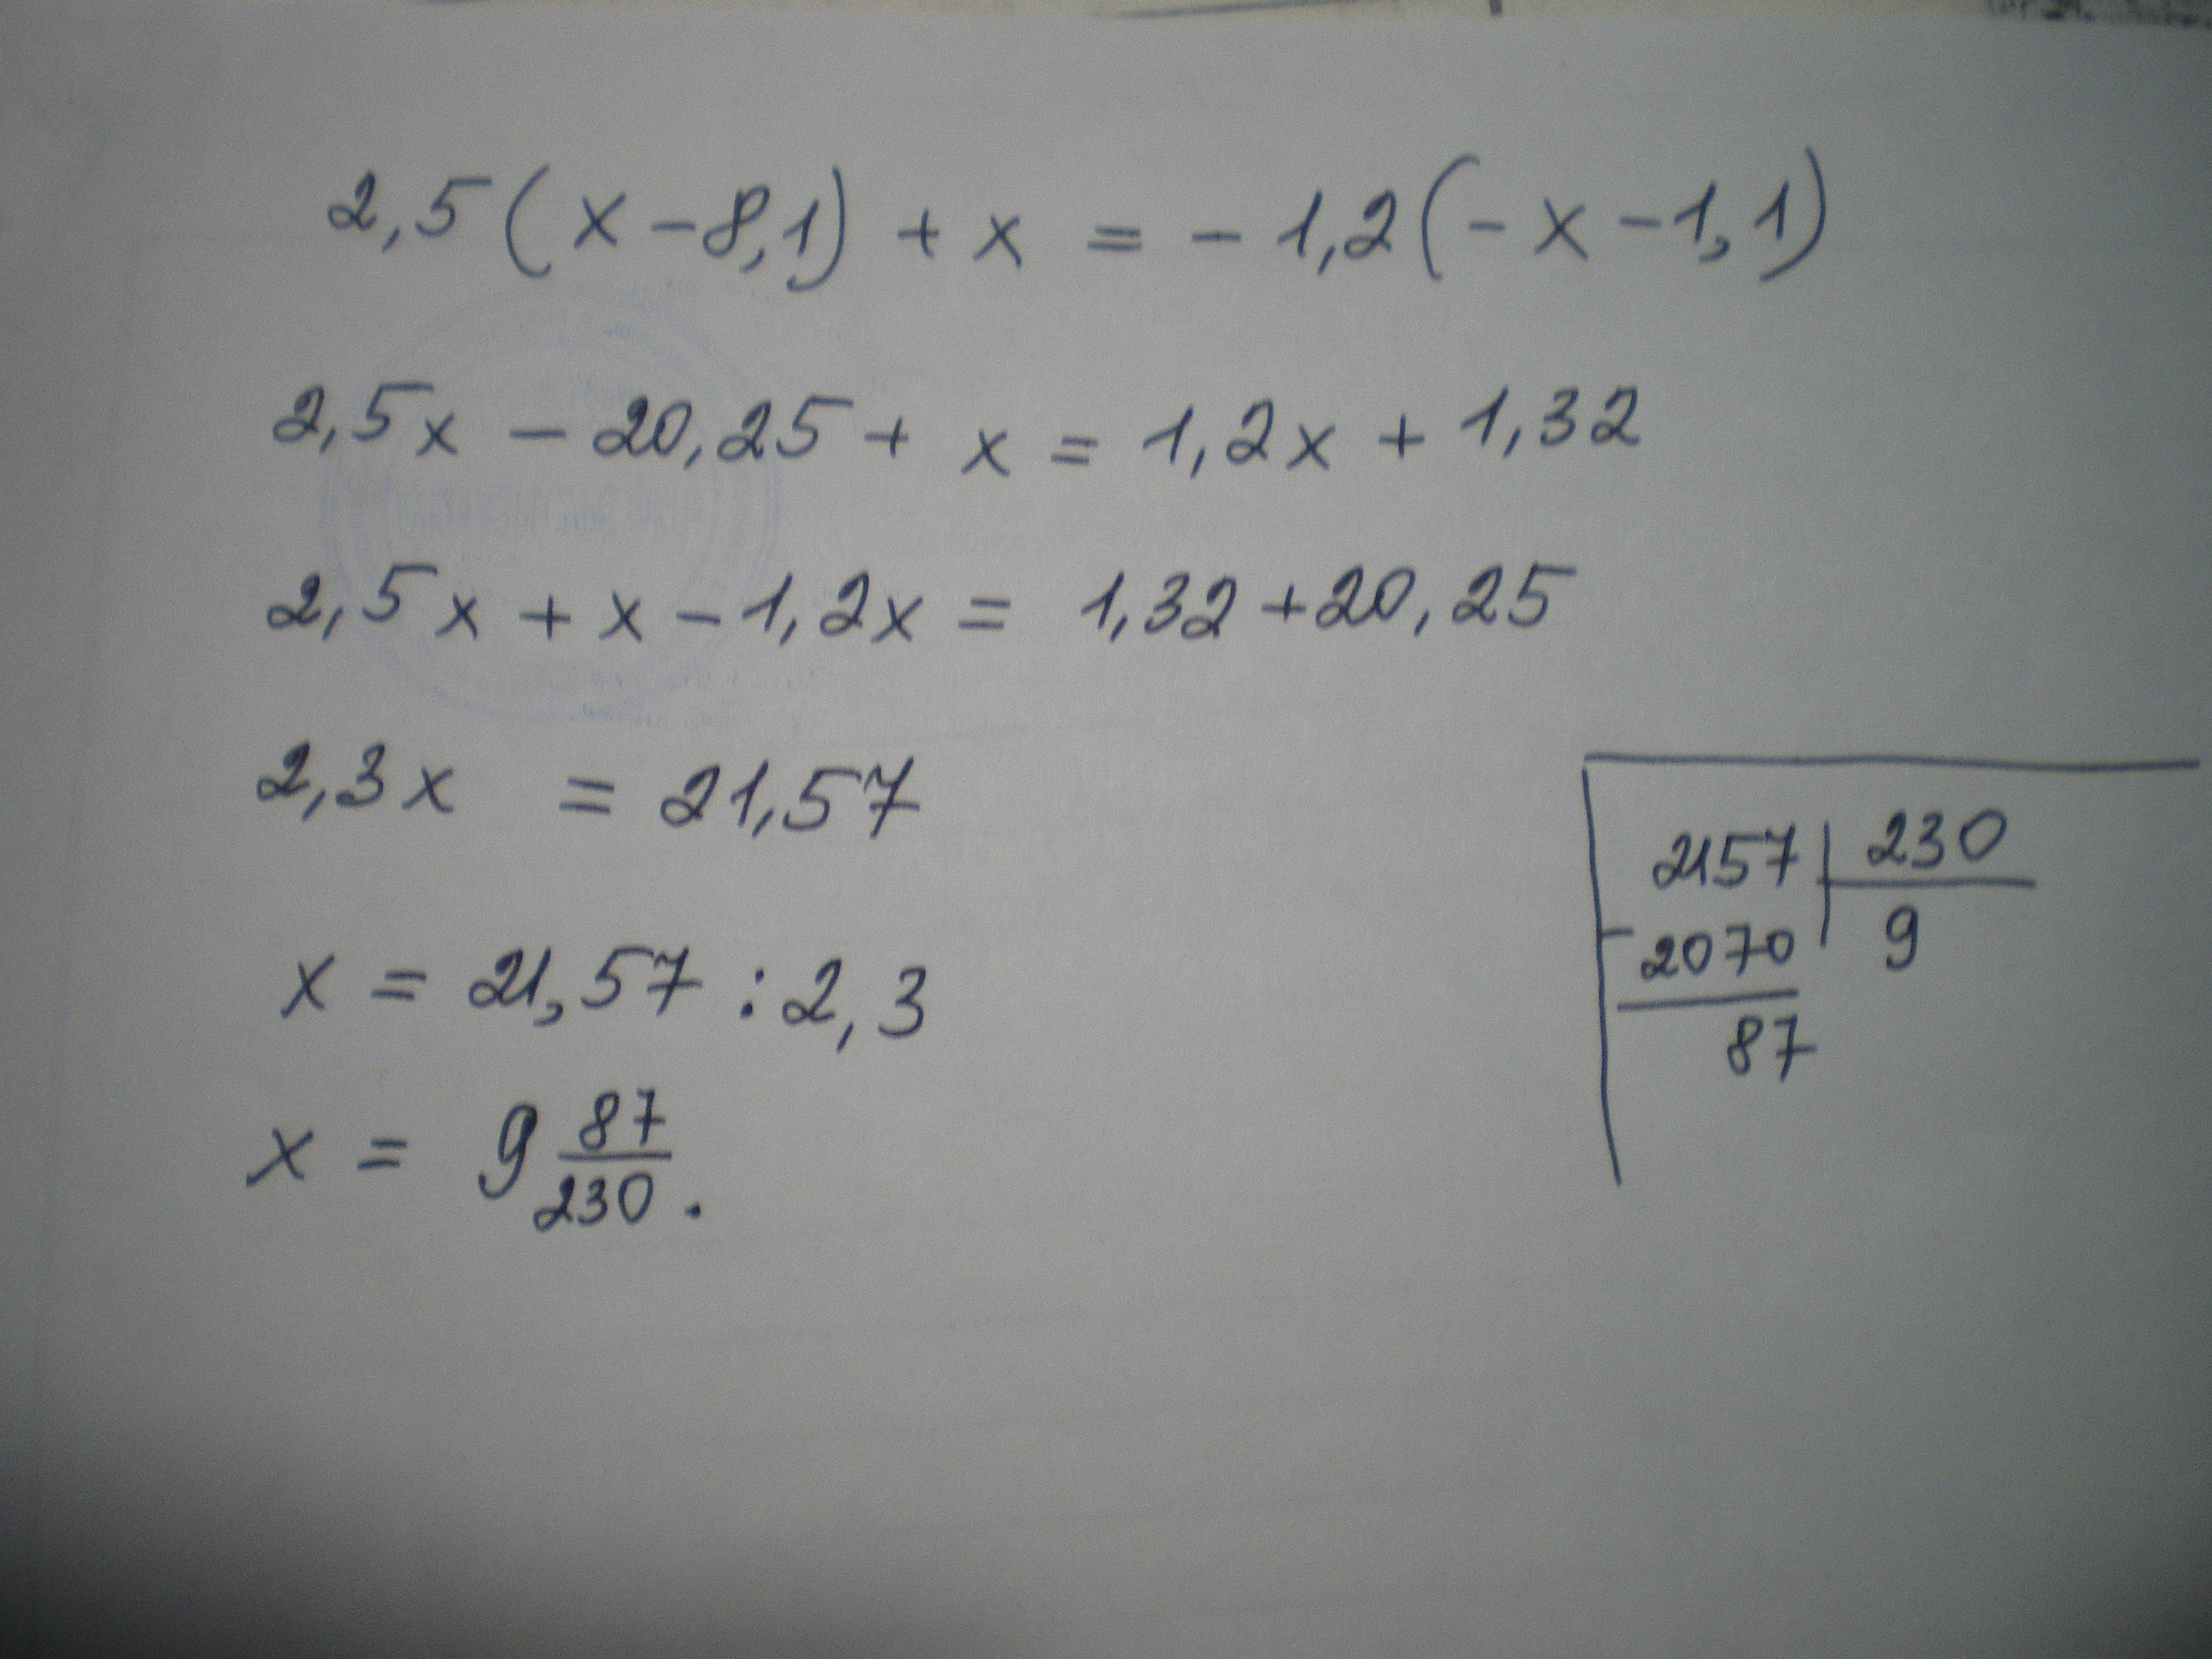 2,5(x-8,1)+x = -1,2(-x-1,1)
2,5x - 20,25 + x = 1,2x + 1,32
2,5x + x - 1,2x = 1,32+20,25
2,3x = 21,57
x = 21,57 : 2,3
x = 9 87/230 .
2157 | 230
- 2070 | 9
87